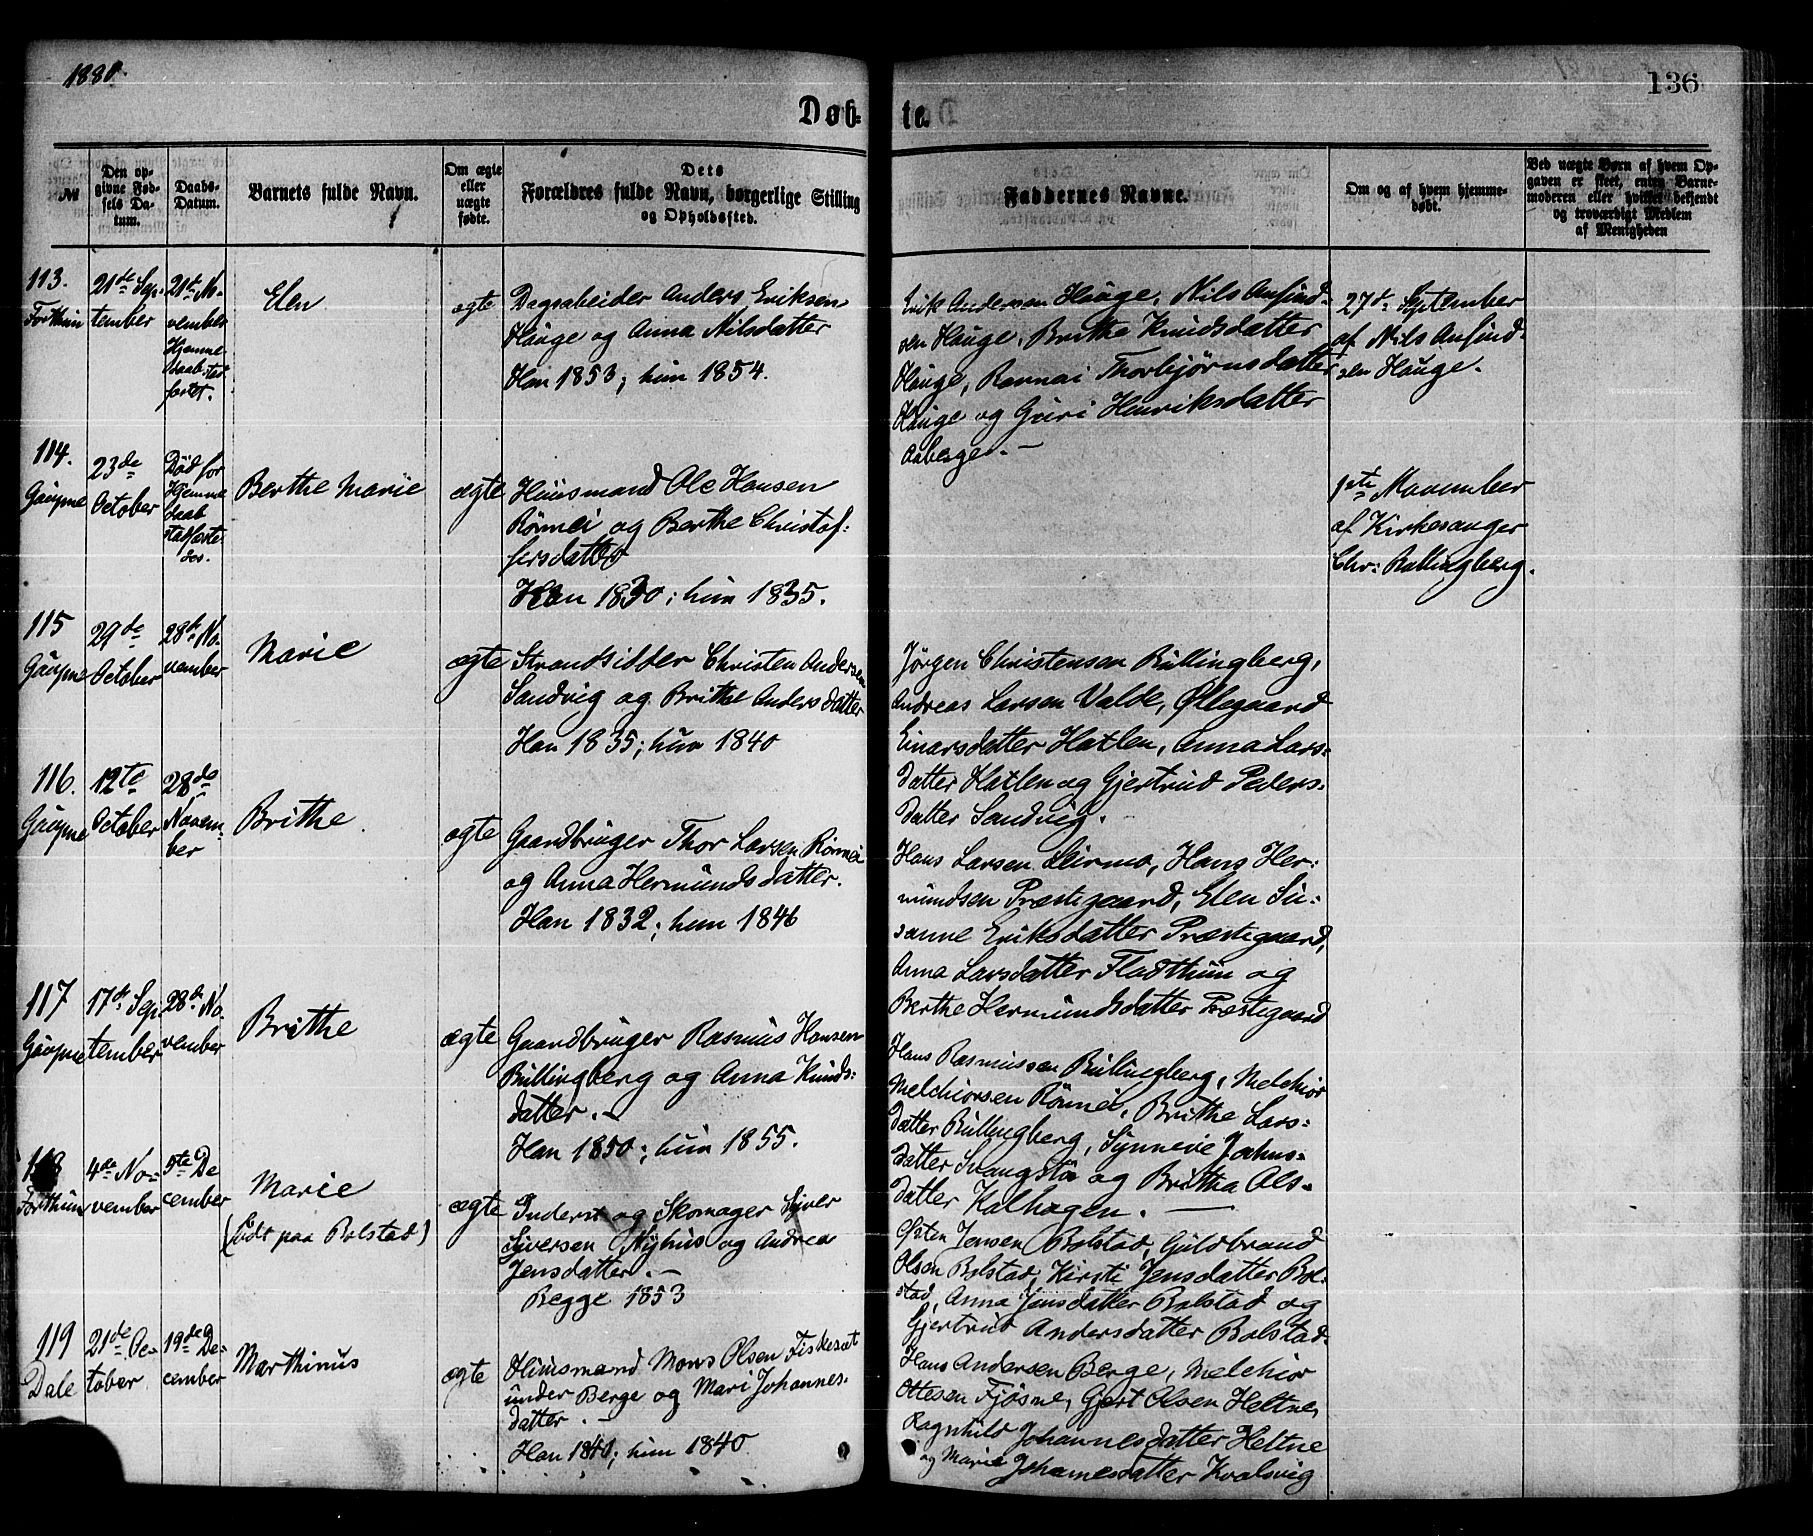 1880.
136
Døb-
te.
№
Den op-
givne Fød-
sels Da-
tum.
Daabs-
Datum.
Barnets fulde Navn.
Om ægte
eller
uægte
fødte.
Dets
Forældres fulde Navn, borgerlige Stilling
og Opholdssted.
Faddernes Navne.
Om og af hvem hjemme-
døbt.
Ved uægte Børn af hvem Op-
gaven er skeet, enten Barne-
moderen eller hvilket bekjendt
og troværdigt Medlem
af Menigheden
113.
Forthun
21de Sep-
tember
21de No-
vember
Hjemme
daab stad
fæstet.
Elen
ægte
Dagsabeider Anders Eriksen
Hauge og Anna Nilsdatter
Han 1853; hun 1854.
Erik Andersen Hauge, Nils Anfind-
sen Hauge, Brithe Knudsdatter
Hauge, Rannei Thorbjørnsdatter
Hauge og Guri Henriksdatter
Aaberge. —
27de September
af Nils Anfind-
sen Hauge.
114.
Gaupne
23de
October
Død før
Hjemme
daab
stadfæste-
des.
Berthe Marie
ægte
Huusmand Ole Hansen
Rönnei og Berthe Christof-
fersdatter
Han 1830; hun 1835.
1ste November
af Kirkesanger
Chr: Bullingberg.
115
Gaupne
29de
October
28de No-
vember
Marie
ægte
Strandsidder Christen Andersen
Sandvig og Brithe Andersdatter
Han 1835; hun 1840
Jørgen Christensen Bullingberg,
Andreas Larsen Valde, Øllegaard
Einarsdatter Hatlen, Anna Lars-
datter Hatlen og Gjertrud Peders-
datter Sandvig.
116.
Gaupne
12te
October
28de
Novem-
ber
Brithe
ægte
Gaardbruger Thor Larsen Rönnei
og Anna Hermundsdatter.
Han 1832; hun 1846
Hans Larsen Leirmo, Hans Her-
mundsen Præstegaard, Elen Su-
sanne Eriksdatter Præstegaard,
Anna Larsdatter Fladthun og
Berthe Hermundsdatter Præstegaard
117
Gaupne
17de Sep-
tember
28de No-
vember
Brithe
ægte
Gaardbruger Rasmus Hansen
Bullingberg og Anna Knuds-
datter. —
Han 1850; hun 1855.
Hans Rasmussen Bullingberg, Melchior
Melchiorsen Rönnei, Brithe Lars-
datter Bullingberg, Synneve Johns-
datter Svangstu og Britha Ols-
datter Kalhagen. —
118
Forthun
4de No-
vember
5te De-
cember
Marie
(født paa Bolstad)
ægte
Inderst og Skomager Siver
Siversen Nyhus og Andrea
Jensdatter. —
Begge 1853
Østen Jensen Bolstad, Guldbrand
Olsen Bolstad, Kirsti Jensdatter Bol-
stad, Anna Jensdatter Bolstad og
Gjertrud Andersdatter Bolstad
119
Dale
21de Oc-
tober
19de De-
cember
Marthinus
ægte
Huusmand Mons Olsen Fiskesæt
under Berge og Mari Johannes-
datter. —
Han 1840; hun 1840.
Hans Andersen Berge, Melchior
Ottesen Fjøsne, Gjert Olsen Heltne,
Ragnhild Johannesdatter Heltne
og Marie Johannesdatter Kvalsvig